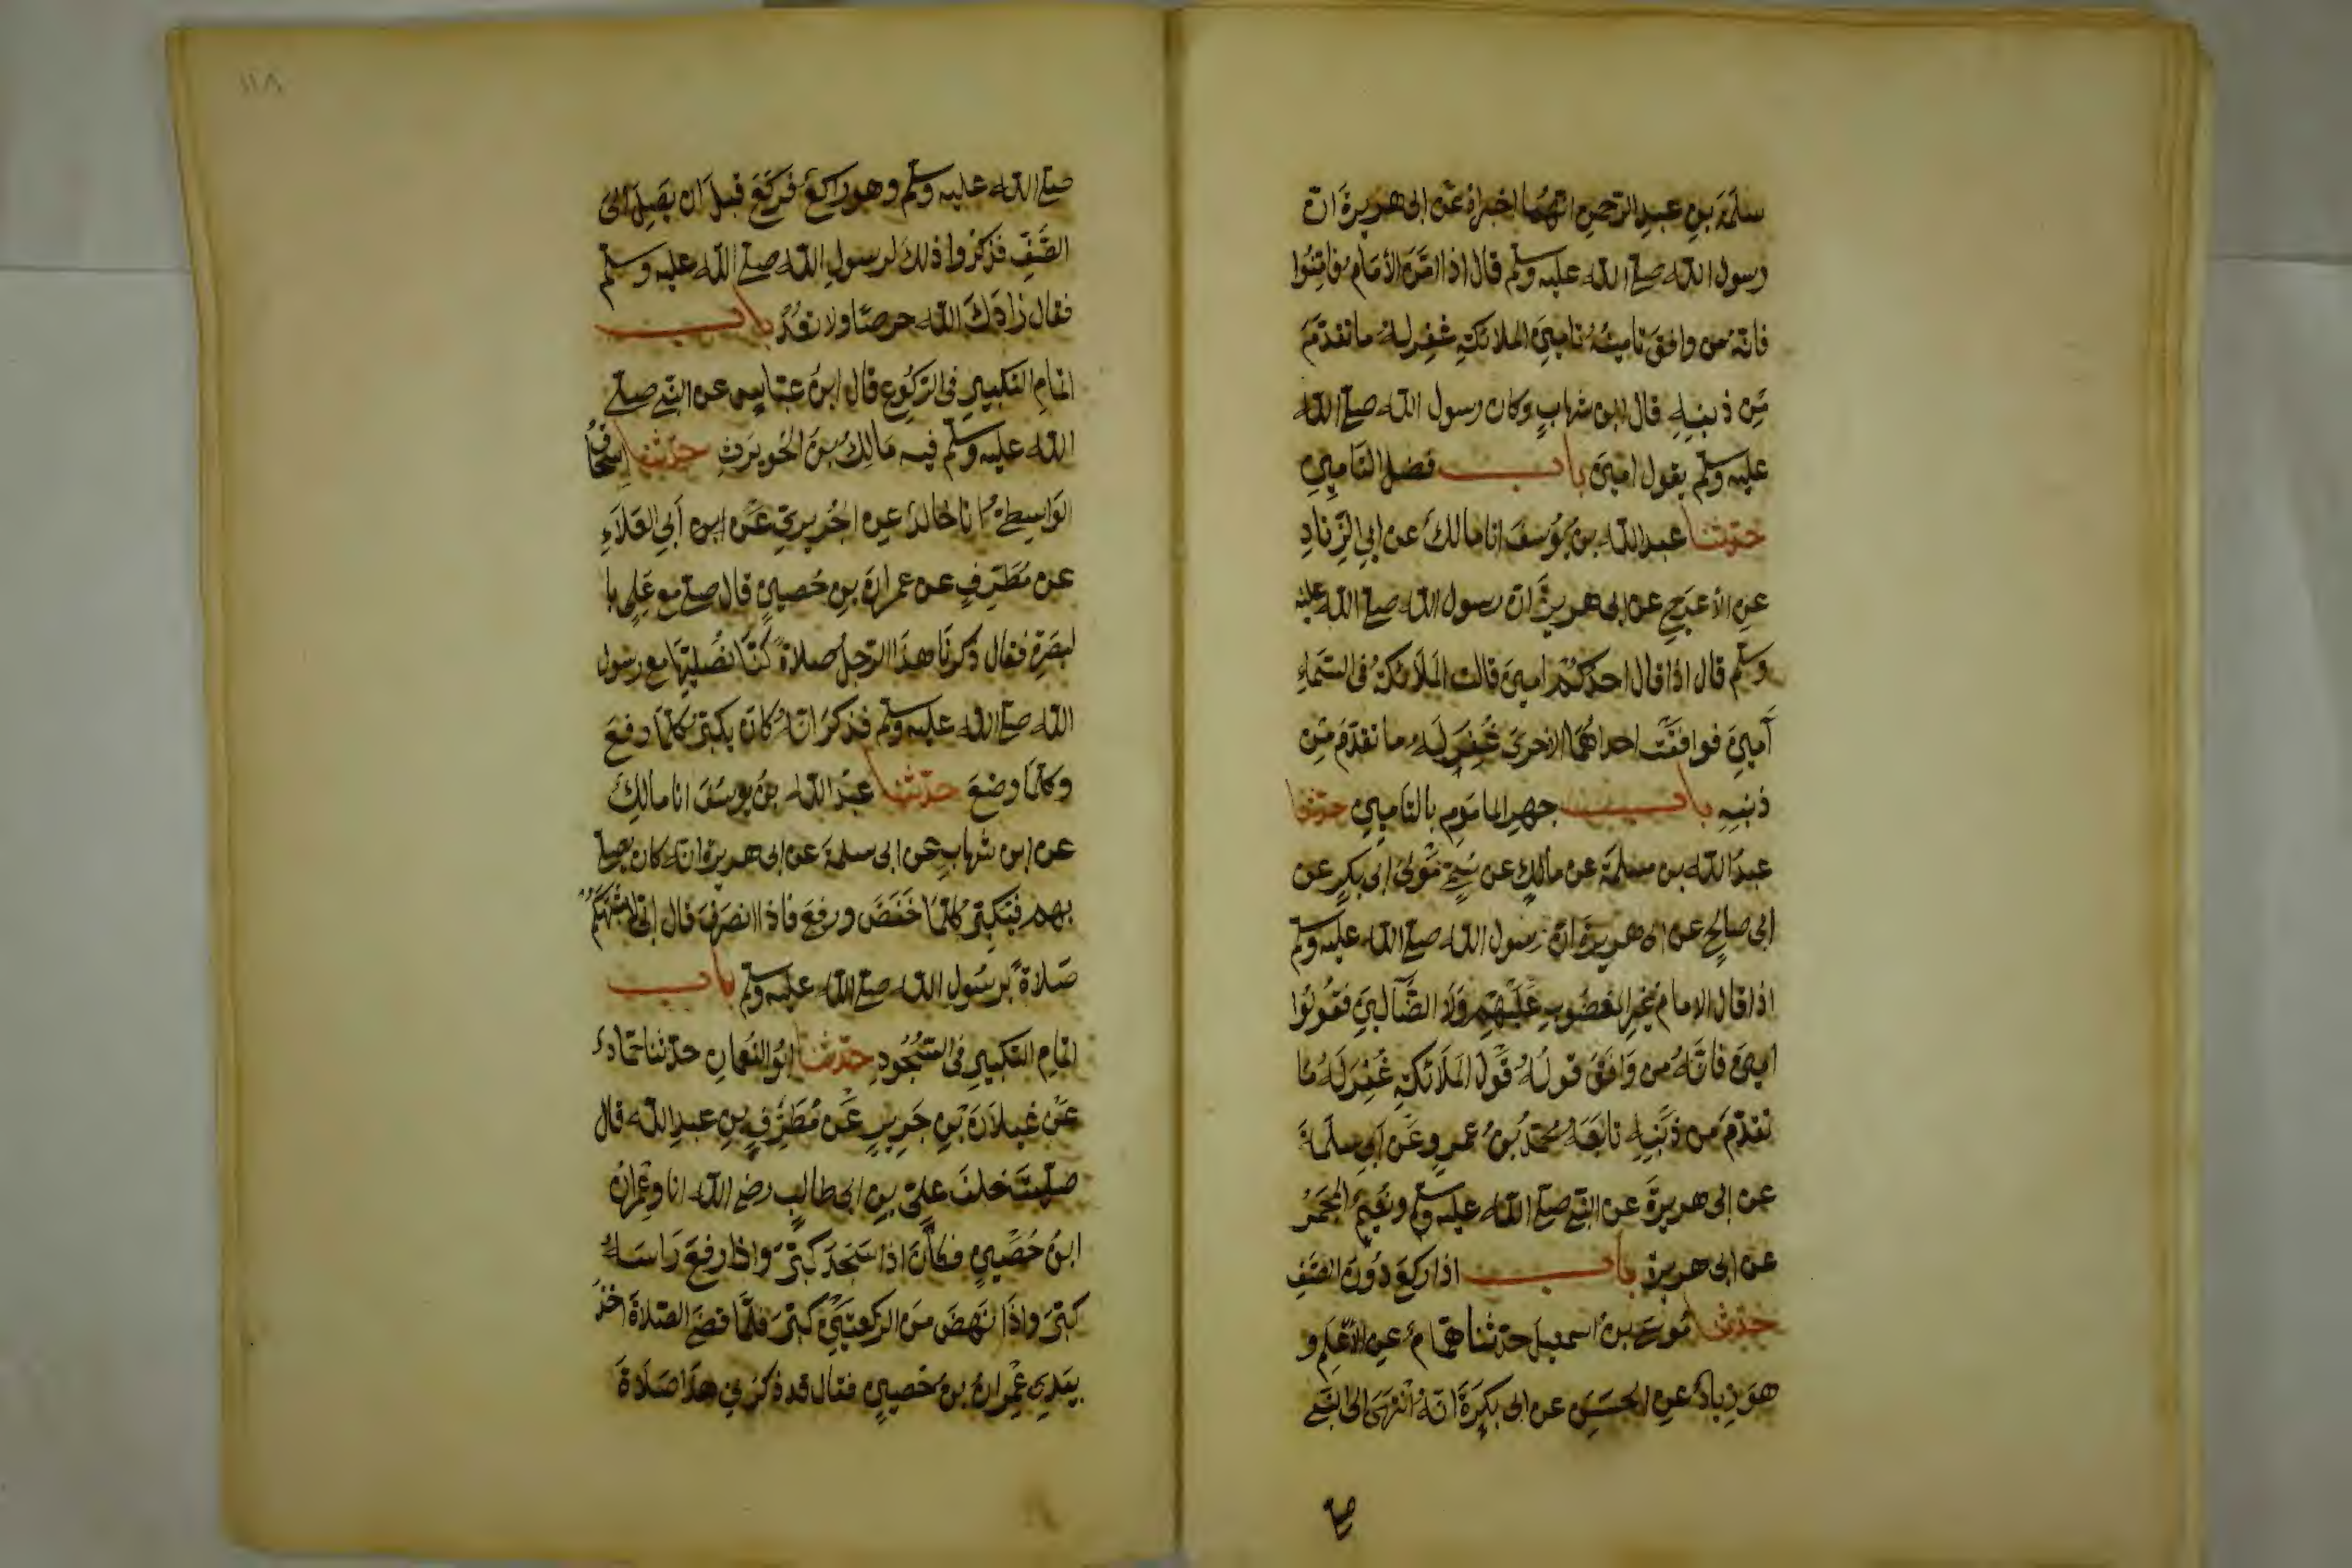 سلمة بن عبد الرحمن انهما اخبراه عن ابى هريرة ان
رسول الله صلى الله عليه وسلم قال اذا امّن الأمام فامّنوا
فانّه من وافق تامينُهُ تامين الملائكةِ غفر له ما تقدّم
مِن ذنبهِ قال ابن شهاب وكان رسول الله صلى الله
عليه وسلم يقول امين باب فضل التامين
حدّثنا عبد الله بن يوسف انا مالك عن ابى الزناد
عن الأعرج عن ابى هريرة ان رسول الله صلى الله عليه
وسلم قال اذا قال احدكم امين قالت الملائكة فى السّماء
آمين فوافقت احداهما الاخرى غُفر له ما تقدّم مِن
ذنبه باب جهر الماموم بالتامين حدّثنا
عبد الله بن مسلمة عن مالك عن سُمَىّ مولى ابى بكر عن
ابى صالح عن ابى هريرة ان رسول الله صلى الله عليه وسلم
اذا قال الامام غير المغضوب عليهم ولا الضّآلين فقولوا
امين فانّه من وافق قوله قول الملائكة غُفر له ما
تقدّم من ذنبه تابعه محمّد بن عمرو عن ابى سلمة
عن ابى هريرة عن النّبى صلى الله عليه وسلم ونعيم المجمر
عن ابى هريرة باب اذا ركع دون الصّف
حدّثنا موسى بن اسمعيل حدّثنا همّام عن الأعلم و
هو زياد عن الحسن عن ابى بكرة انّه انتهى الى النّبى
صلى
١١٨
صلى الله عليه وسلم وهو راكع فركع قبل ان يصل الى
الصّف فذكروا ذلك لرسول الله صلى الله عليه وسلم
فقال زادك الله حرصًا ولا تعُد باب
اتمام التكبير فى الركوع قال ابن عباس عن النّبى صلى
الله عليه وسلم فيه مالك بن الحويرث حدّثنا اسحاق
الواسطى انا خالد عن الجريرى عن ابن ابى العلاء
عن مُطرّف عن عمران بن حُصين قال صلى مع علىّ با
لبصرة فقال ذكرنا هذا الرجل صلاة كنّا نصليها مع رسول
الله صلى الله عليه وسلم فذكر انّه كان يكبّر كلّما رفع
وكلّما وضع حدّثنا عبد الله بن يوسف انا مالك
عن ابن شهاب عن ابى سلمة عن ابى هريرة انّه كان يصلى
بهم فيكبّر كلّما خفض ورفع فاذا انصرف قال انى لأشبهكم
صلاةً برسول الله صلى الله عليه وسلم باب
اتمام التكبير فى السّجود حدّثنا ابو النعمان حدّثنا حمّاد
عن غيلان بن جرير عن مُطرّف بن عبد الله قال
صلّيت خلف علىّ بن ابى طالب رضى الله انا وعمران
ابن حُصين فكان اذا سجد كبّر واذا رفع راسه
كبّر واذا نهض من الركعتين كبّر فلمّا قضى الصّلاة اخذ
بيدى عمران بن حُصين فقال قد ذكرنى هذا صلاة